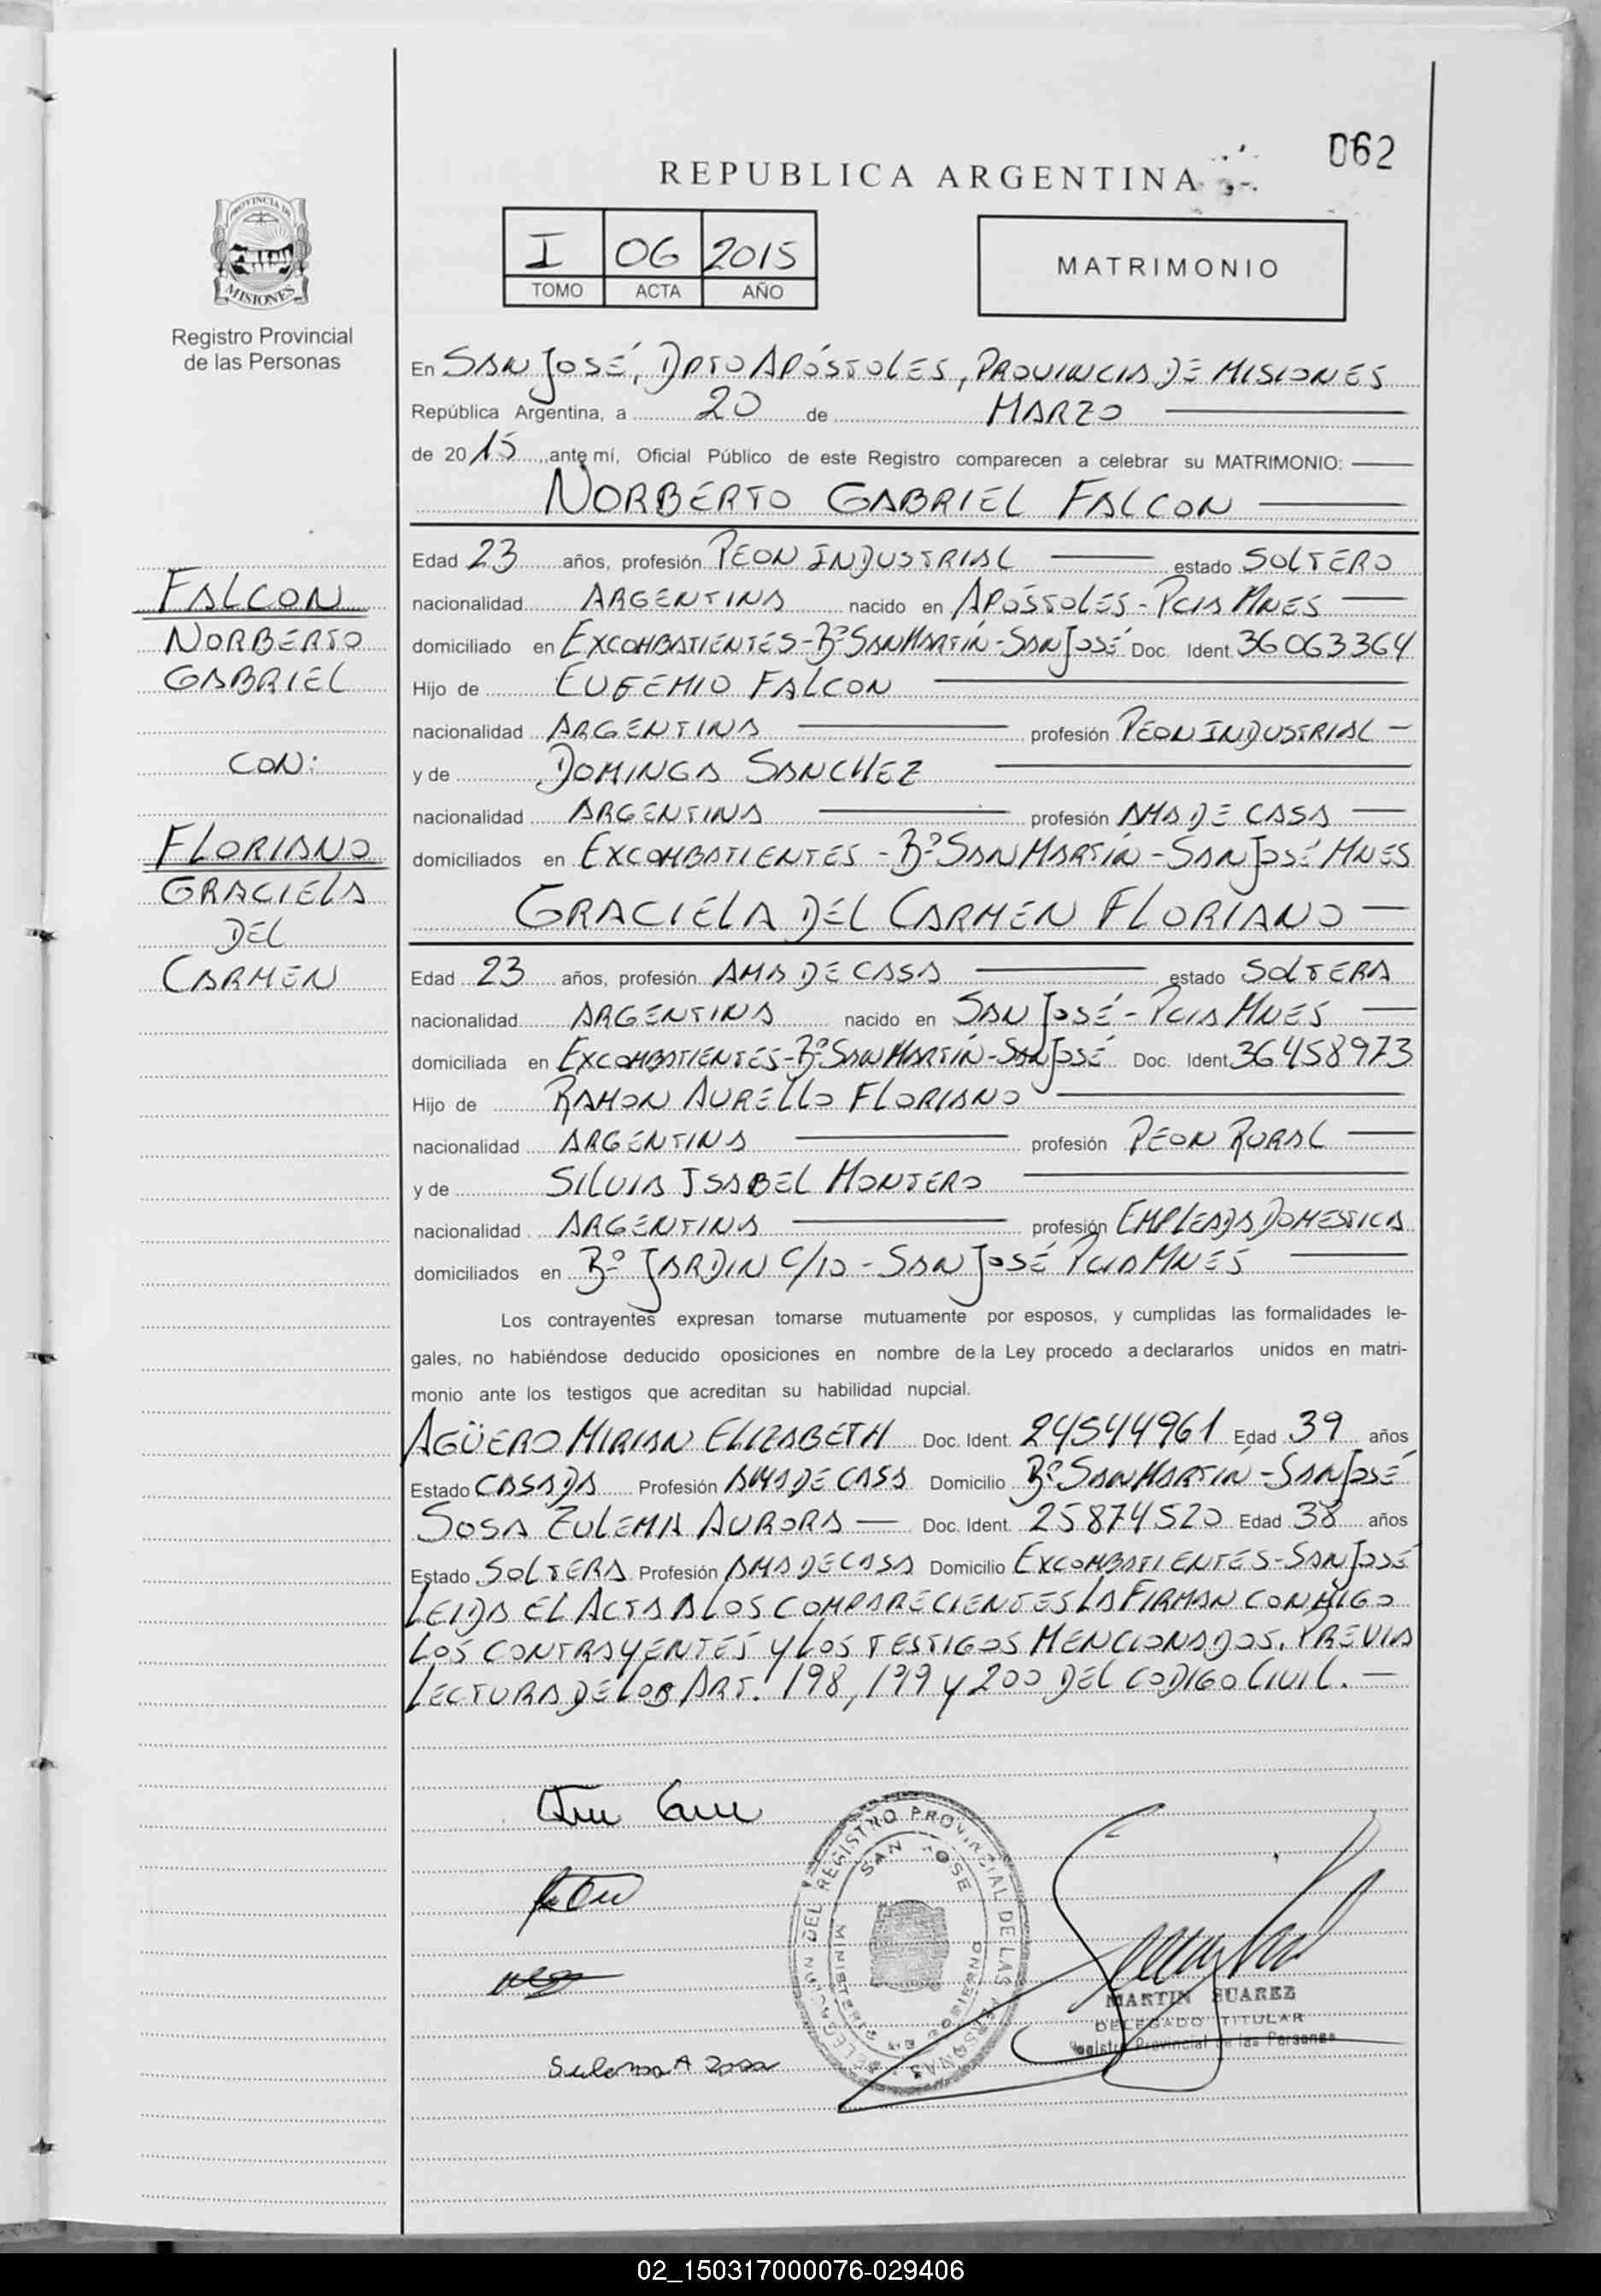 062
REPUBLICA ARGENTINA
I 06 2015
TOMO ACTA AÑO
MATRIMONIO
PROVINCIA DE
MISIONES
Registro Provincial
de las Personas
En SAN JOSÉ, DPTO APÓSTOLES, PROVINCIA DE MISIONES
República Argentina, a 20 de MARZO
de 2015, ante mí, Oficial Público de este Registro comparecen a celebrar su MATRIMONIO:
NORBERTO GABRIEL FALCON
Edad 23 años, profesión PEON INDUSTRIAL estado SOLTERO
nacionalidad ARGENTINA nacido en APÓSTOLES - PCIA MNES
domiciliado en EXCOMBATIENTES - Bº SAN MARTÍN - SAN JOSÉ Doc. Ident. 36063364
Hijo de EUGEMIO FALCON
nacionalidad ARGENTINA profesión PEON INDUSTRIAL
y de DOMINGA SANCHEZ
nacionalidad ARGENTINA profesión AMA DE CASA
domiciliados en EXCOMBATIENTES - Bº SAN MARTÍN - SAN JOSÉ MNES
GRACIELA DEL CARMEN FLORIANO
Edad 23 años, profesión AMA DE CASA estado SOLTERA
nacionalidad ARGENTINA nacido en SAN JOSÉ - PCIA MNES
domiciliada en EXCOMBATIENTES - Bº SAN MARTÍN - SAN JOSÉ Doc. Ident. 36458973
Hijo de RAMON AURELLO FLORIANO
nacionalidad ARGENTINA profesión PEON RURAL
y de SILVIA ISABEL MONTERO
nacionalidad ARGENTINA profesión EMPLEADA DOMESTICA
domiciliados en Bº JARDIN C/10 - SAN JOSÉ PCIA MNES
Los contrayentes expresan tomarse mutuamente por esposos, y cumplidas las formalidades le-
gales, no habiéndose deducido oposiciones en nombre de la Ley procedo a declararlos unidos en matri-
monio ante los testigos que acreditan su habilidad nupcial.
AGÜERO MIRIAN ELIZABETH Doc. Ident. 24544961 Edad 39 años
Estado CASADA Profesión AMA DE CASA Domicilio Bº SAN MARTÍN - SAN JOSÉ
SOSA ZULEMA AURORA Doc. Ident. 25874520 Edad 38 años
Estado SOLTERA Profesión AMA DE CASA Domicilio EXCOMBATIENTES - SAN JOSÉ
LEIDA EL ACTA A LOS COMPARECIENTES LA FIRMAN CONMIGO
LOS CONTRAYENTES Y LOS TESTIGOS MENCIONADOS. PREVIA
LECTURA DE LOS ART. 198, 199 Y 200 DEL CODIGO CIVIL.
FALCON
NORBERTO
GABRIEL
CON:
FLORIANO
GRACIELA
DEL
CARMEN
DELEGACION DEL REGISTRO PROVINCIAL DE LAS PERSONAS
SAN JOSE
MINISTERIO DE GOBIERNO
MARTIN SUAREZ
DELEGADO TITULAR
Registro Provincial de las Personas
Sulema A Sosa
02_150317000076-029406